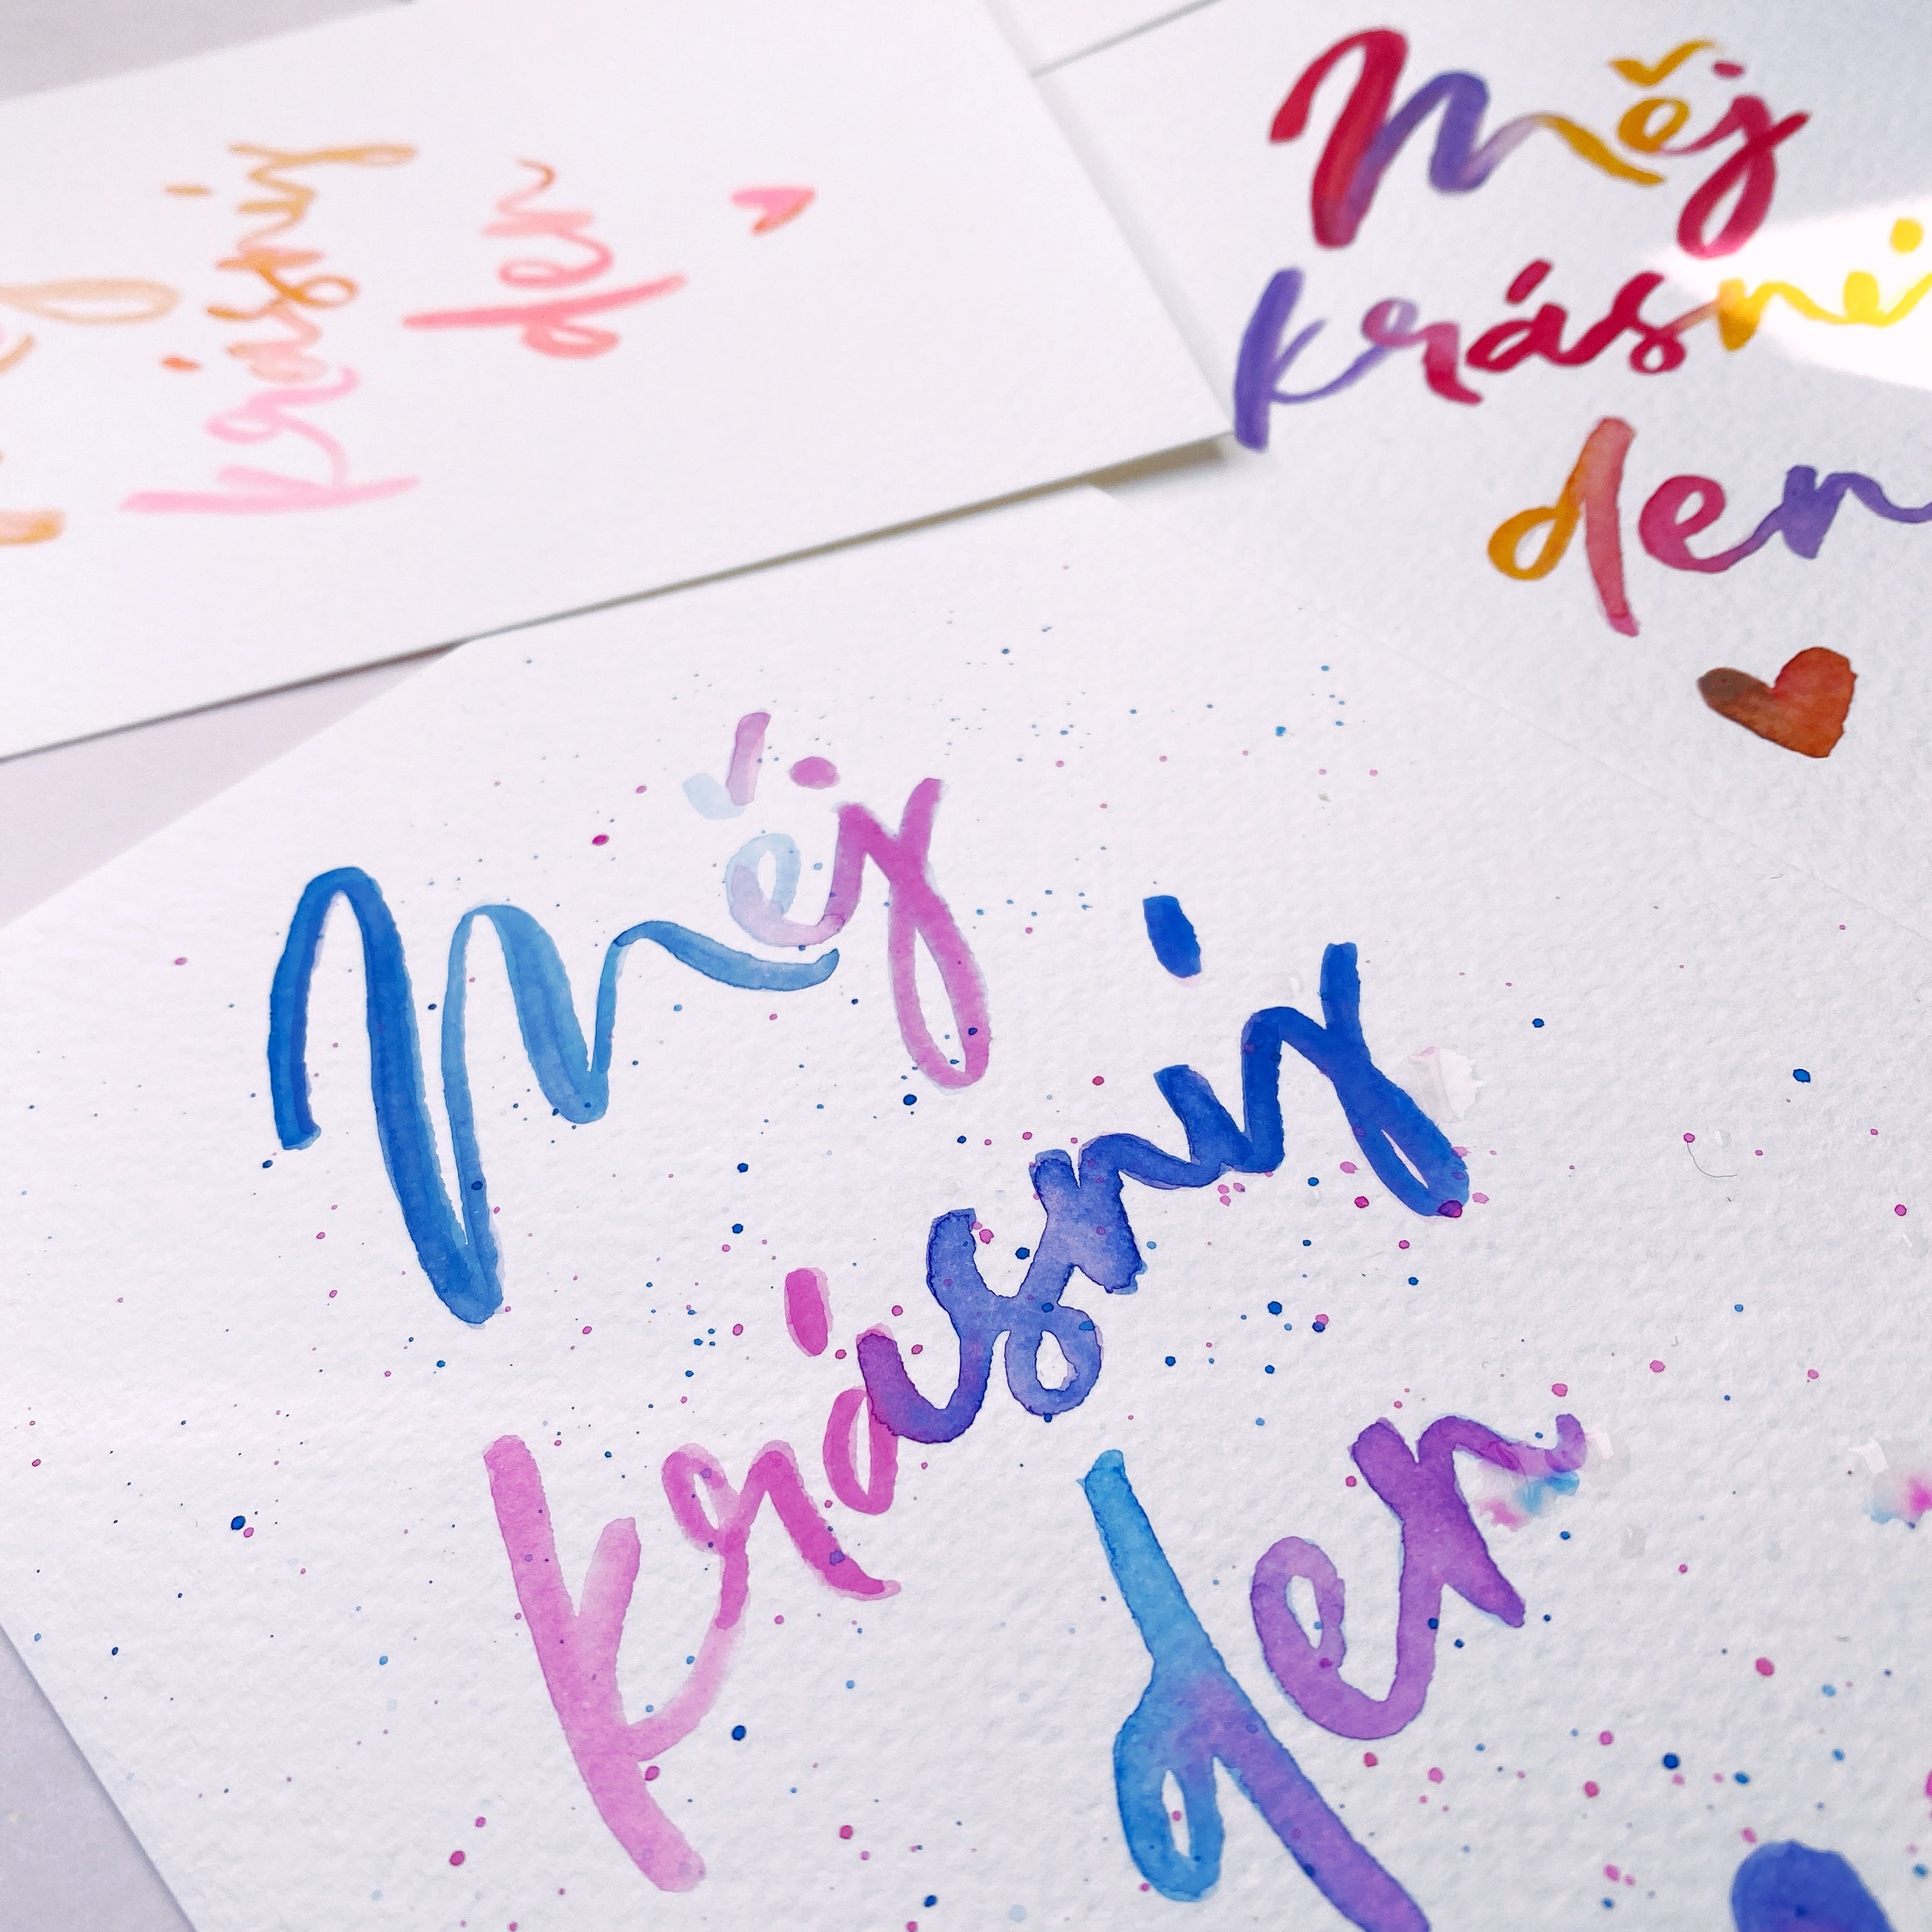 krásný
den
Měj
krásný
den
Měj
krásný
den